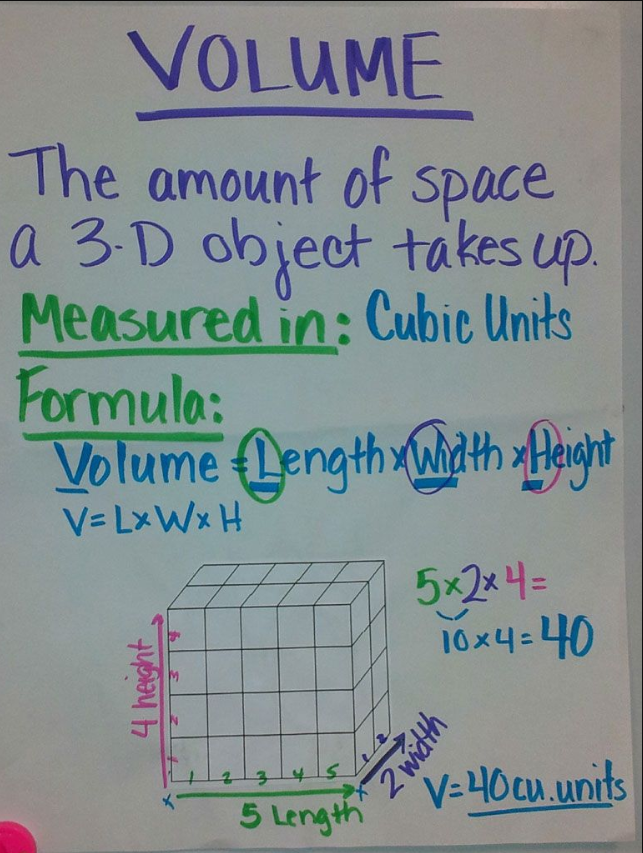 VOLUME
The amount of space
a 3-D object takes up.
Measured in: Cubic Units
Formula:
Volume = Length x Width x Height
V = L x W x H
5 x 2 x 4 =
10 x 4 = 40
4 height
4
3
2
1
1 2 3 4 5
1 2
2 width
5 Length
V = 40 cu. units